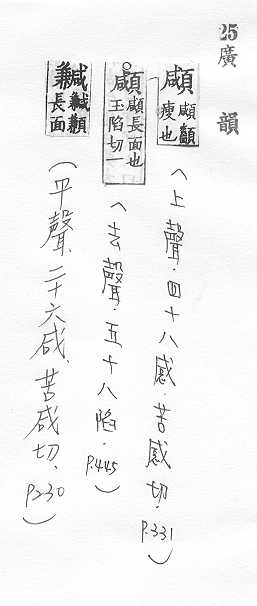 25 廣韻
顑 顑顲瘦也
(上聲.四十八感.苦感切.P.331)
顑 顑長面也 玉陷切一
(去聲.五十八陷.P.445)
長面
(平聲.二十六咸.苦咸切.P230)